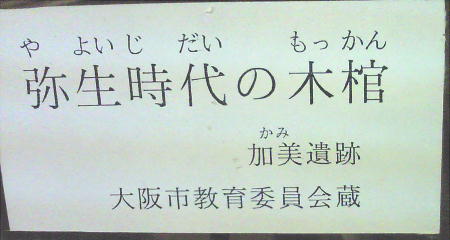 や よいじ だい もっかん
弥生時代の木棺
かみ
加美遺跡
大阪市教育委員会蔵